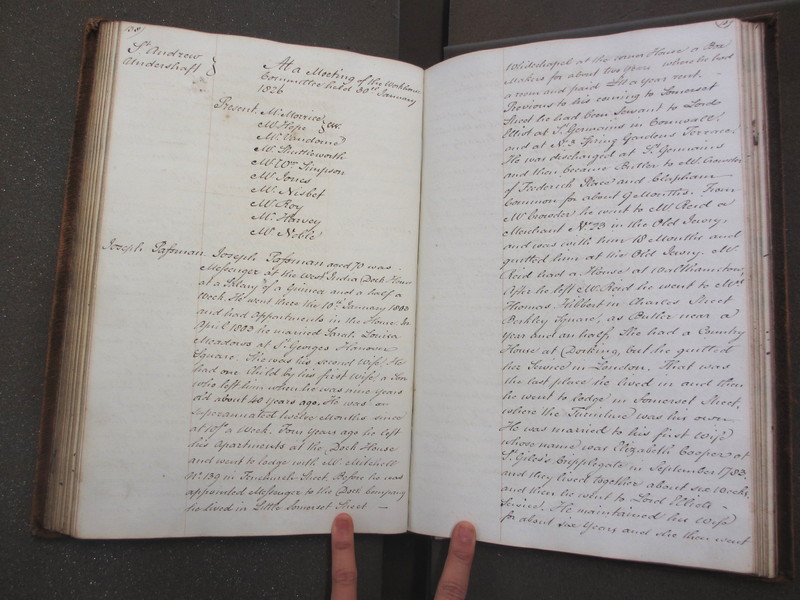 138
St. Andrew
Undershaft
At a Meeting of the Workhouse
Committee held 30th January
1826
Present Mr. Morrice
Mr. Hope } CW.
Mr. Vandome
Mr. Shuttleworth
Mr. Wm. Simpson
Mr. Jones
Mr. Nisbet
Mr. Roy
Mr. Harvey
Mr. Noble
Joseph Passman. Joseph Passman aged 70 was
Messenger at the West India Dock House
at a Salary of a Guinea and a half a
Week. He went there the 10th. January 1803
and had Appartments in the House. In
April 1803 he married Sarah Louisa
Meadows at St. Georges Hanover
Square. She was his second Wife. He
had one Child by his first Wife, a Son
who left him when he was nine years
old about 40 years ago. He was
Superannuated twelve Months since
at 10/. a Week. Four years ago he left
his Apartments at the Dock House
and went to lodge with Mr. Mitchell
No. 139 in Fenchurch Street. Before he was
appointed Messenger to the Dock Company
he lived in Little Somerset Street —
Whitechapel at the corner House a Box
Makers for about two years where he had
a room and paid a year rent.
Previous to his coming to Somerset
Street he had been Servant to Lord
Elliot at St. Germains in Cornwall,
and at No. 3 Spring Gardens Terrace.
He was discharged at St. Germains
and then became Butler to Mr. Crowder
of Frederick Place and Clapham
Common for about 9 Months. From
Mr. Crowder he went to Mr. Reid a
Merchant No. 23 in the Old Jewry,
and was with him 18 Months and
quitted him at the Old Jewry. Mr.
Reid had a House at Walthamstow,
After he left Mr. Reid he went to Mrs.
Thomas Hibbert in Charles Street
Berkley Square, as Butler near a
Year and an half, She had a Country
House at Dorking, but he quitted
her Service in London. That was
the last place he lived in and then
he went to lodge in Somerset Street,
where the Furniture was his own.
He was married to his first Wife
whose name was Elizabeth Cooper at
St. Giles's Cripplegate in September 1783.
and they lived together about six Weeks,
and then he went to Lord Elliots
Service. He maintained his Wife
for about six Years and she then went